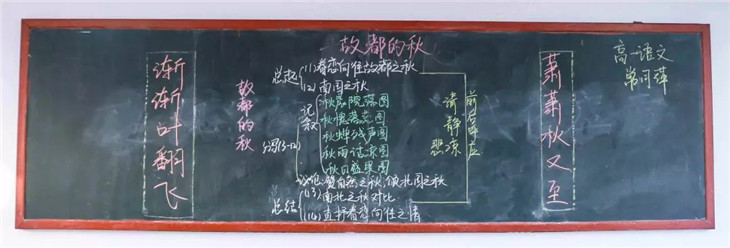 故都的秋
渐渐叶翻飞
故都的秋
总起
(1)眷恋向往故都之秋
(2)南国之秋
分写(3-12)
记叙
秋晨院落图
秋槐落蕊图
秋蝉残声图
秋雨话凉图
秋日盛果图
议论:赞自然之秋,颂北国之秋
总结
(13)南北之秋对比
(14)直抒眷恋向往之情
清静凉
悲
前后呼应
萧萧秋又至
高一语文